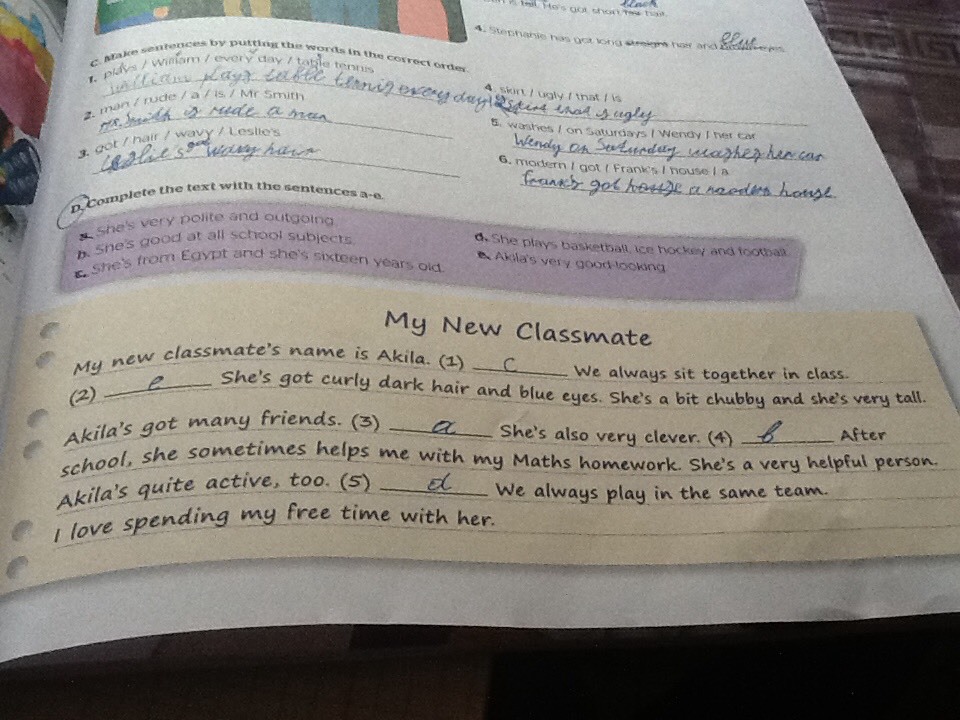 black
is tall. He's got short hair.
4. Stephanie has got long straight hair and blue eyes
C. Make sentences by putting the words in the correct order.
1. plays / William / every day / table tennis
William plays table tennis every day
2. man / rude / a / is / Mr Smith
Mr. Smith is rude a man
3. got / hair / wavy / Leslie's
Leslie's got wavy hair
4. skirt / ugly / that / is
skirt that is ugly
5. washes / on Saturdays / Wendy / her car
Wendy on Saturday washes her car
6. modern / got / Frank's / house / a
frank's got house a modern house
D. Complete the text with the sentences a-e.
a. She's very polite and outgoing.
b. She's good at all school subjects.
c. She's from Egypt and she's sixteen years old.
d. She plays basketball, ice hockey and football.
e. Akila's very good-looking.
My New Classmate
My new classmate's name is Akila. (1) c We always sit together in class.
(2) e She's got curly dark hair and blue eyes. She's a bit chubby and she's very tall.
Akila's got many friends. (3) a She's also very clever. (4) b After
school, she sometimes helps me with my Maths homework. She's a very helpful person.
Akila's quite active, too. (5) d We always play in the same team.
I love spending my free time with her.